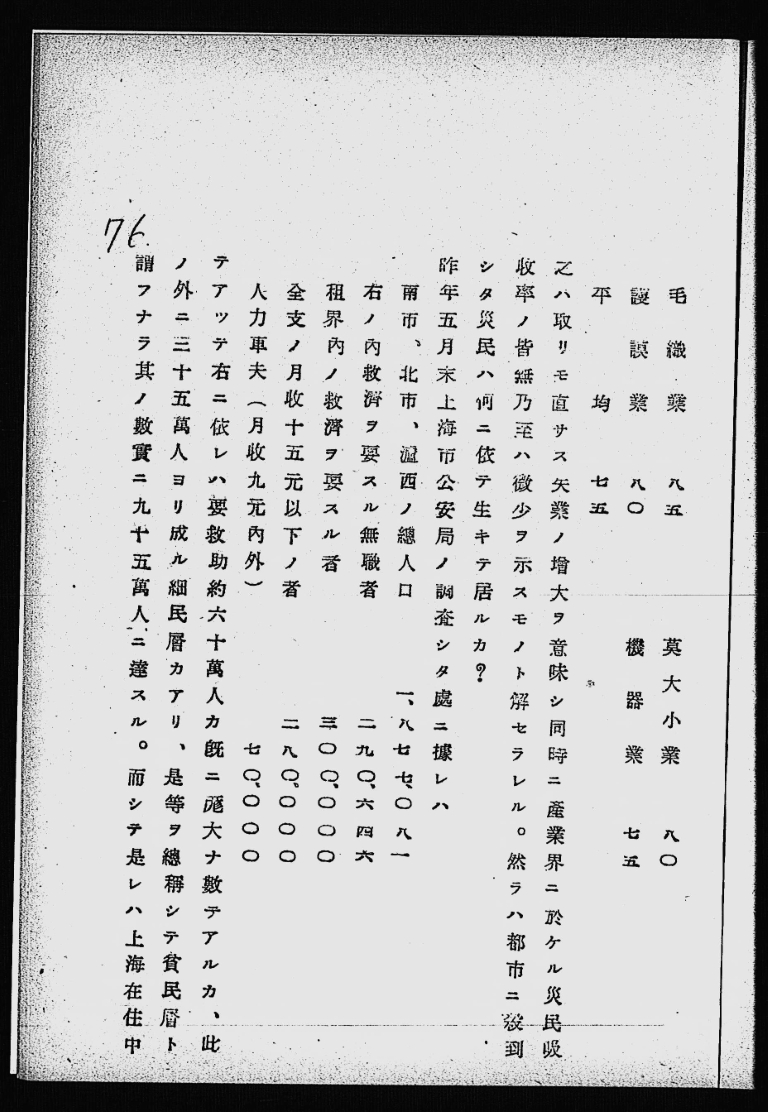 毛織業 八五 莫大小業 八〇
護謨業 八〇 機器業 七五
平均 七五
之ハ取リモ直サス失業ノ増大ヲ意味シ同時ニ產業界ニ於ケル災民吸
收率ノ皆無乃至ハ微少ヲ示スモノト解セラレル。然ラハ都市ニ殺到
シタ災民ハ何ニ依テ生キテ居ルカ?
昨年五月末上海市公安局ノ調査シタ處ニ據レハ
南市、北市、滬西ノ總人口 一、八七七、〇八一
右ノ內救濟ヲ要スル無職者 二九〇、六四六
租界內ノ救濟ヲ要スル者 三〇〇、〇〇〇
全支ノ月收十五元以下ノ者 二八〇、〇〇〇
人力車夫(月收九元內外) 七〇、〇〇〇
テアツテ右ニ依レハ要救助約六十萬人カ旣ニ尨大ナ數テアルカ、此
ノ外ニ三十五萬人ヨリ成ル細民層カアリ、是等ヲ總稱シテ貧民層ト
謂フナラ其ノ數實ニ九十五萬人ニ達スル。而シテ是レハ上海在住中
76.